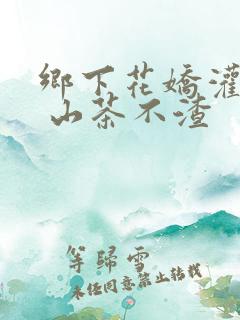 鄉下花嬌灌
山茶不渣
等歸雪
未经同意禁止转载